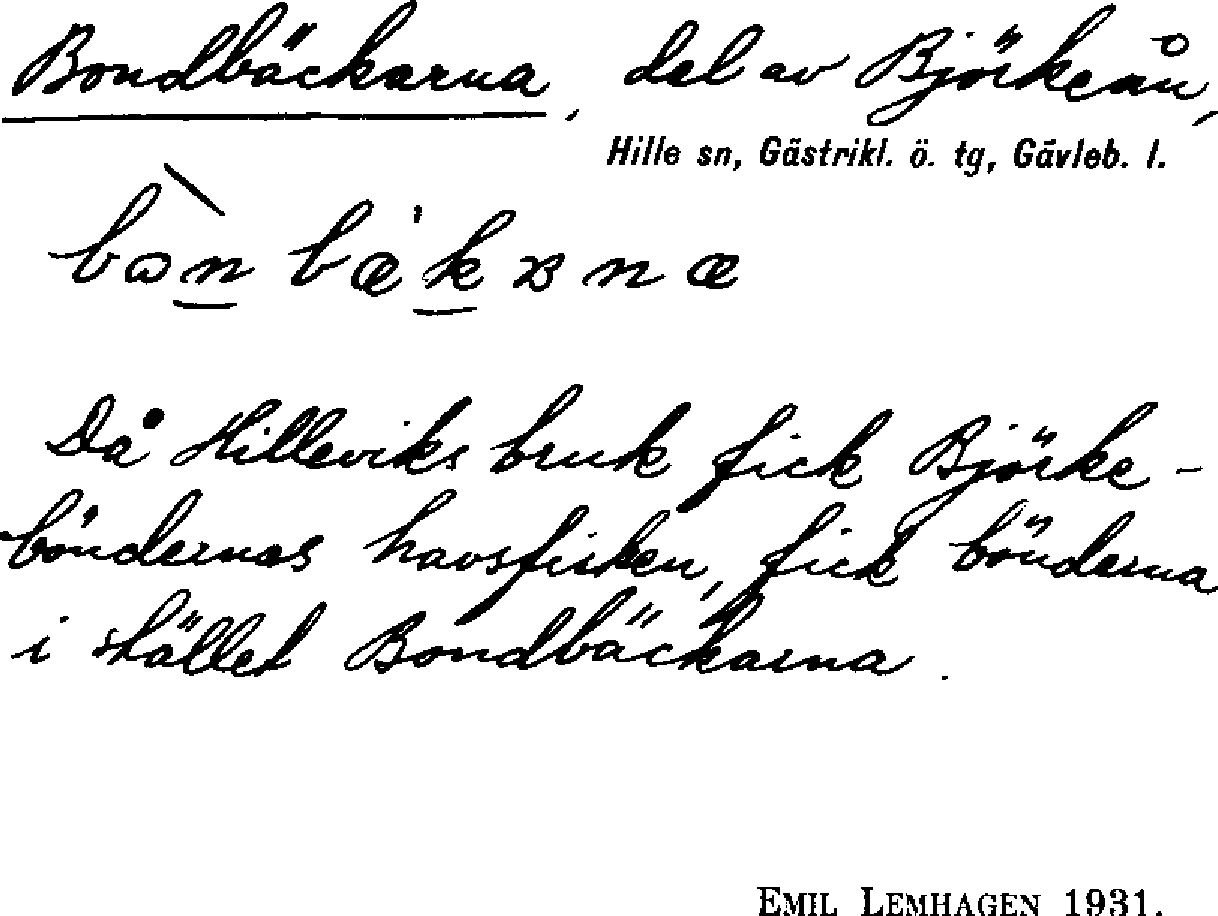 Bondbäckarna, del av Björkeån,
Hille sn, Gästrikl. ö. tg, Gävleb. l.
Då Hilleviks bruk fick Björke-
böndernas havsfisken, fick bönderna
i stället Bondbäckarna.
EMIL LEMHAGEN 1931.